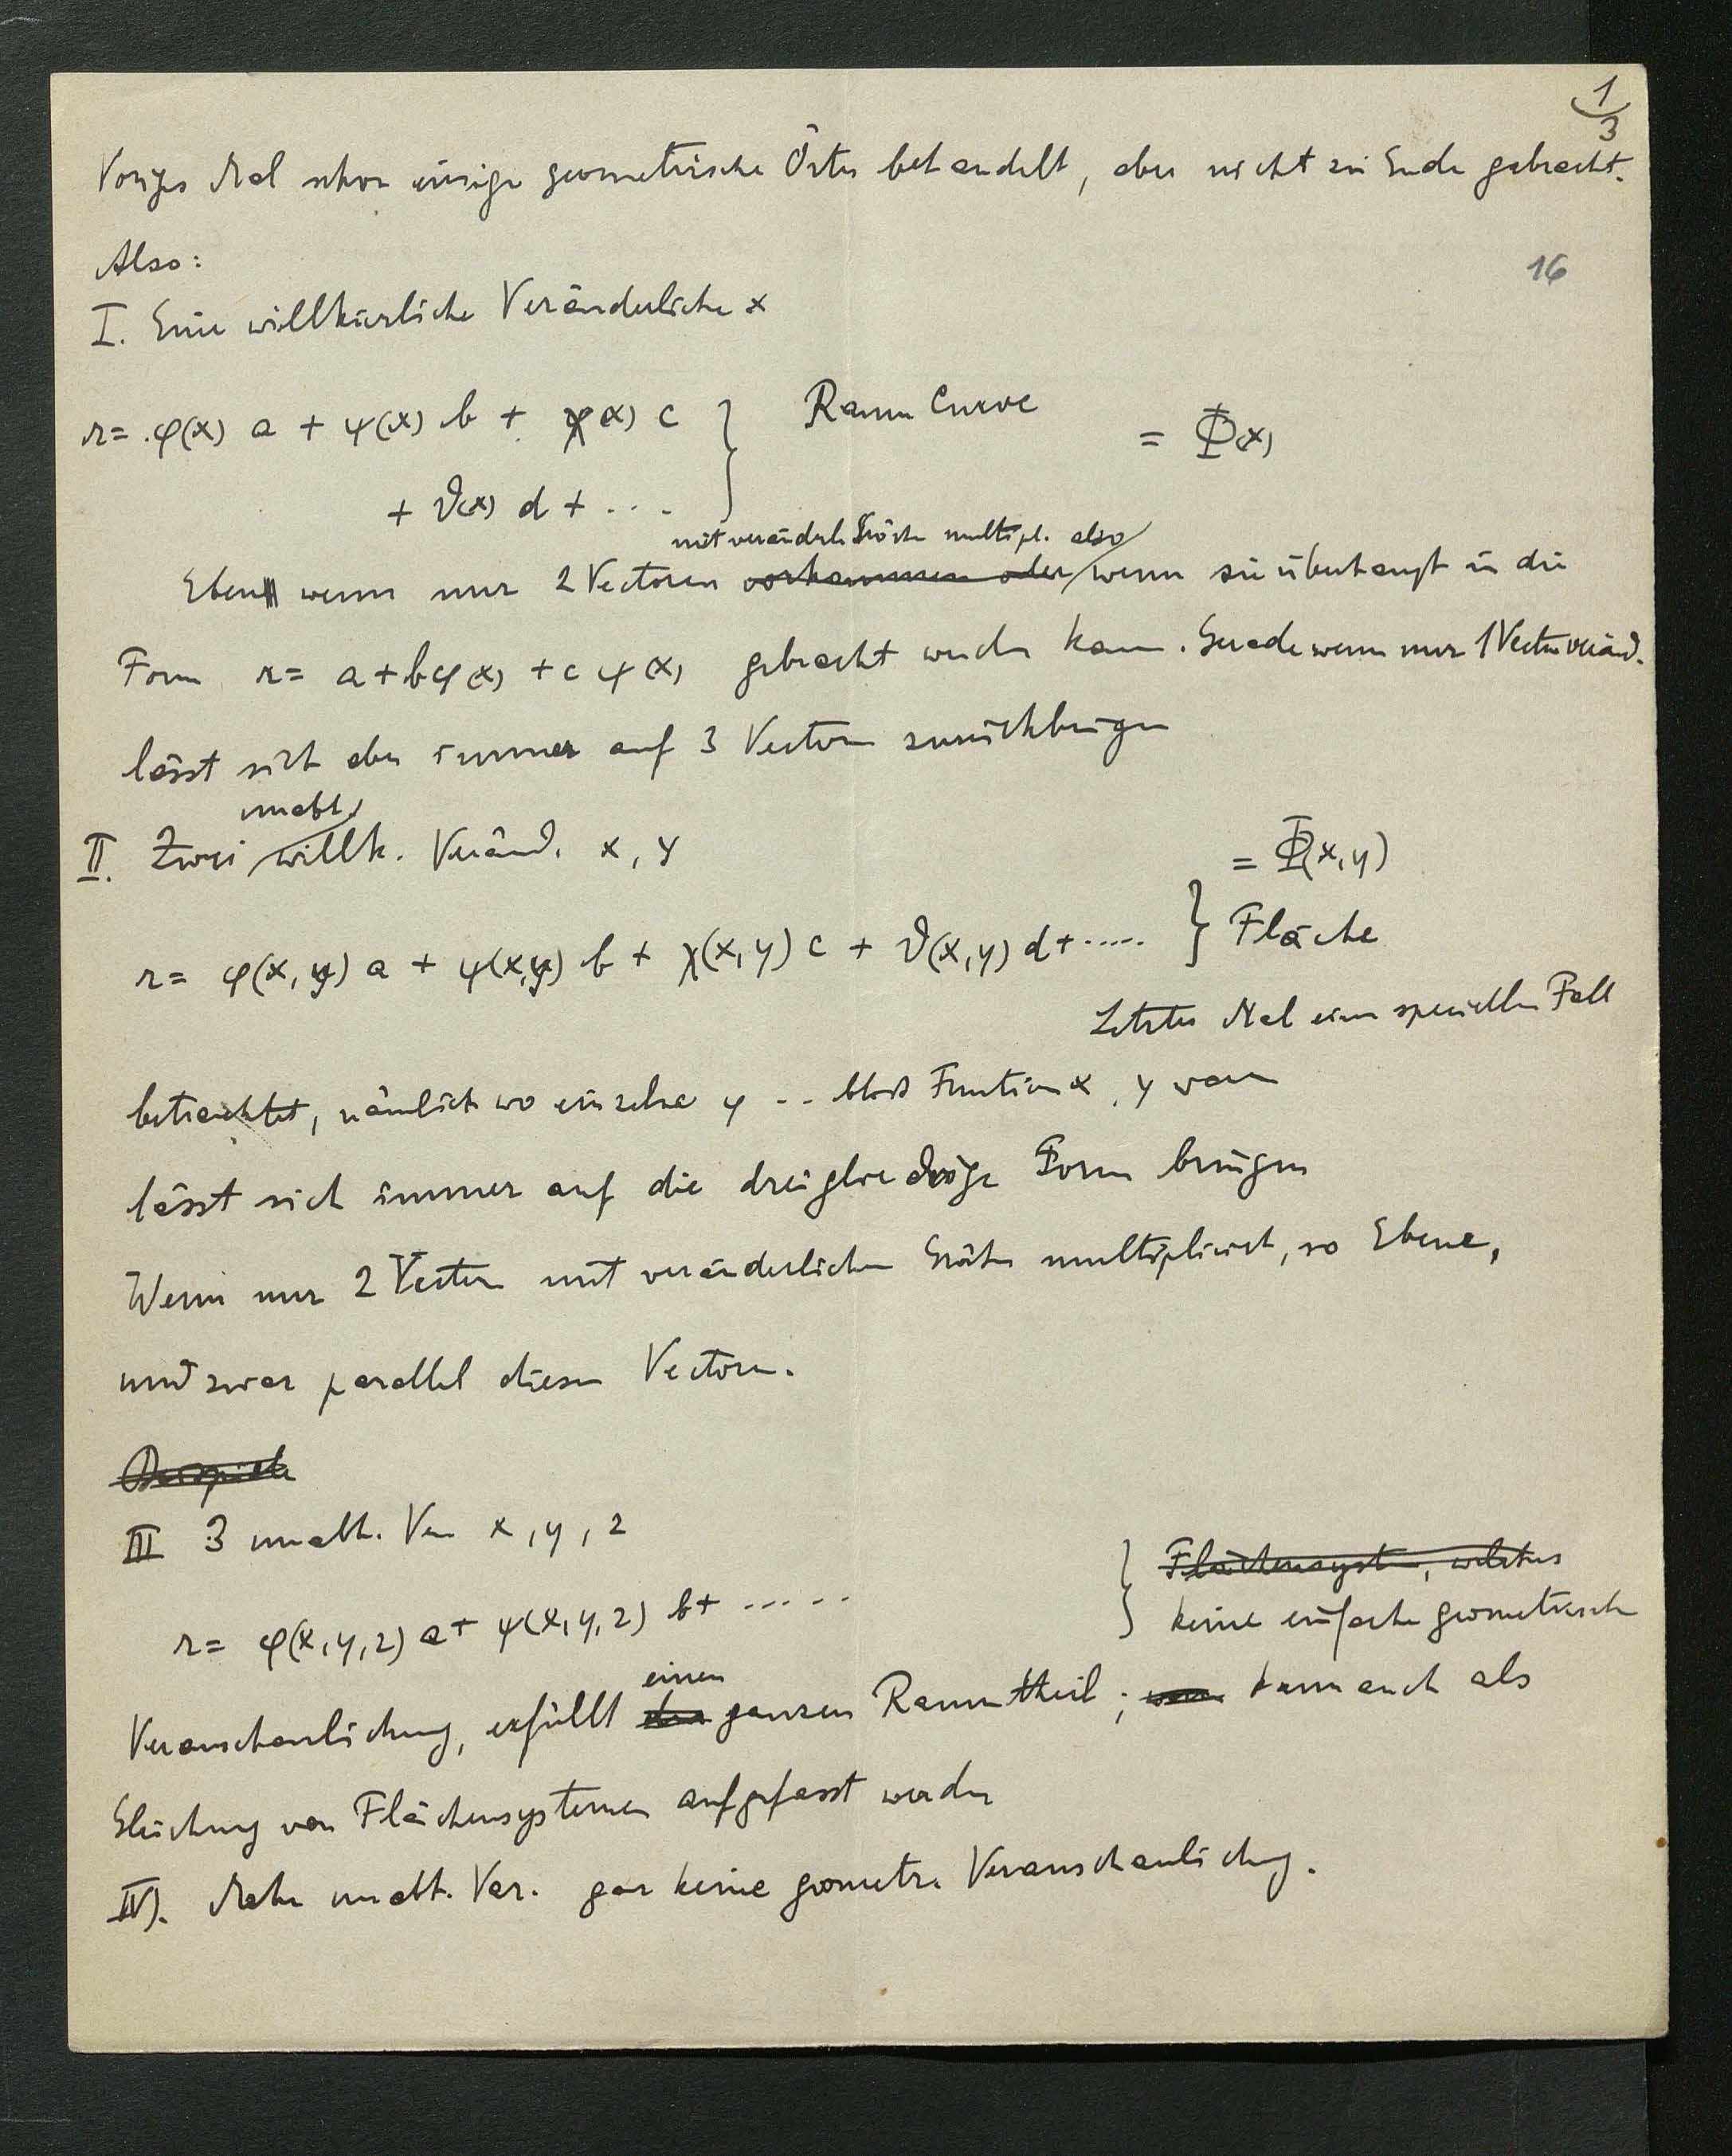 1/3
Voriges Mal schon einige geometrische Örter behandelt, aber nicht zu Ende gebracht.
Also:
16
I. Eine willkürliche Veränderliche x
r = φ(x) a + ψ(x) b + χ(x) c } Raum Curve = Φ(x)
+ ϑ(x) d + ...
mit veränderl. Größen multipl. also
Eben wenn nur 2 Vectoren vorkommen oder wenn sie überhaupt in die
Form r = a + bφ(x) + c ψ(x) gebracht werden kann. Gerade wenn nur 1 Vector veränd.
lässt sich aber immer auf 3 Vectoren zurückbringen
unabh.
II. Zwei willk. Veränd. x, y
= Φ(x, y)
r = φ(x, y) a + ψ(x, y) b + χ(x, y) c + ϑ(x, y) d + ..... } Fläche
Letztes Mal einen speciellen Fall
betrachtet, nämlich wo einzelne φ .. bloß Function x, y waren
lässt sich immer auf die dreigliedrige Form bringen
Wenn nur 2 Vectoren mit veränderlichen Größen multiplicirt, so Ebene,
und zwar parallel diesen Vectoren.
Beispiele
III 3 unabh. Ver x, y, z
} Flächensyst., welches
r = φ(x, y, z) a + ψ(x, y, z) b + ..... keine einfache geometrische
einen
Veranschaulichung, erfüllt den ganzen Raumtheil; kann auch als
Gleichung von Flächensystemen aufgefasst werden
IV). Mehr unabh. Var. gar keine geometr. Veranschaulichung.